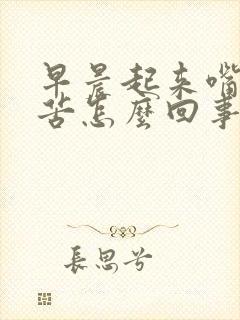 早晨起来嘴
苦怎麼回事
長思兮